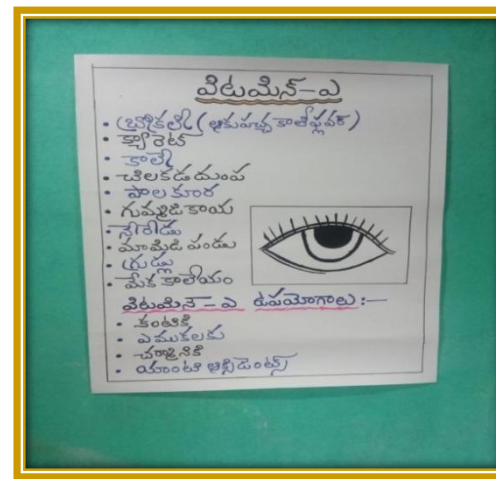 విటమిన్-ఎ
• బ్రోకలీ (ఆకుపచ్చ కాలీఫ్లవర్)
• క్యారెట్
• కాలే
• చిలకడదుంప
• పాలకూర
• గుమ్మడికాయ
• నేరేడు
• మామిడి పండు
• గ్రుడ్లు
• మేక కాలేయం
విటమిన్ - ఎ ఉపయోగాలు :-
• కంటికి
• ఎముకలకు
• చర్మానికి
• యాంటి ఆక్సిడెంట్స్